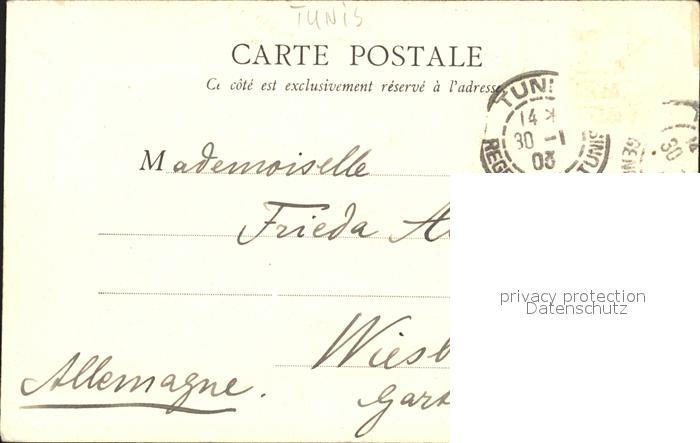 TUNIS
CARTE POSTALE
Ce côté est exclusivement réservé à l'adresse
TUNI
14
30 -1
03
REG
TUNIS
30
Mademoiselle
Frieda A
privacy protection
Datenschutz
Wiesb
Allemagne.
Gart